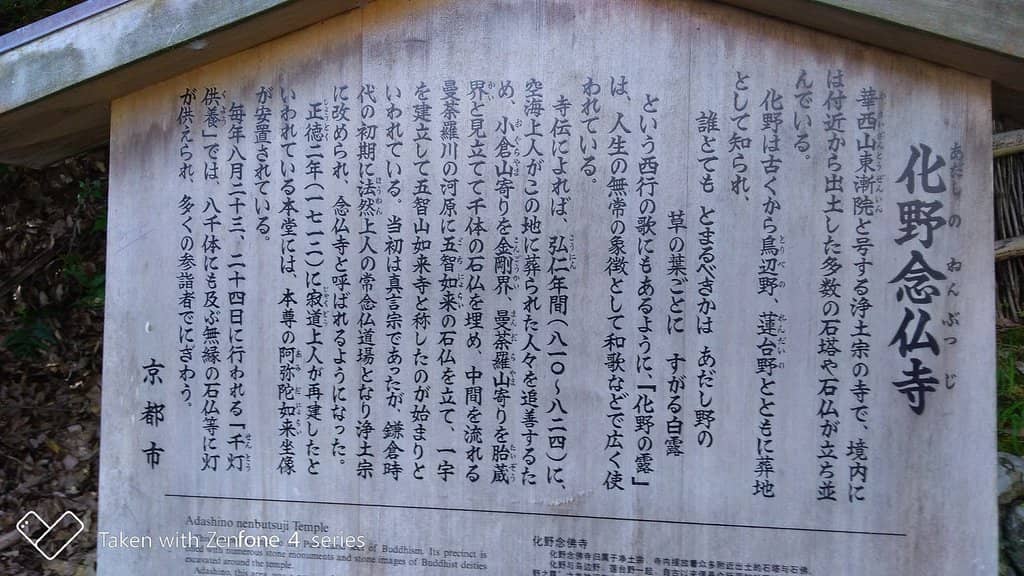 化野念仏寺
あだしの ねんぶつじ
華西山東漸院と号する浄土宗の寺で、境内に
は付近から出土した多数の石塔や石仏が立ち並
んでいる。
化野は古くから鳥辺野、蓮台野とともに葬地
として知られ、
誰とても とまるべきかは あだし野の
草の葉ごとに すがる白露
という西行の歌にもあるように、「化野の露」
は、人生の無常の象徴として和歌などで広く使
われている。
寺伝によれば、弘仁年間(八一〇〜八二四)に、
空海上人がこの地に葬られた人々を追善するた
め、小倉山寄りを金剛界、曼荼羅山寄りを胎蔵
界と見立てて千体の石仏を埋め、中間を流れる
曼荼羅川の河原に五智如来の石仏を立て、一宇
を建立して五智山如来寺と称したのが始まりと
いわれている。当初は真言宗であったが、鎌倉時
代の初期に法然上人の常念仏道場となり浄土宗
に改められ、念仏寺と呼ばれるようになった。
正徳二年(一七一二)に寂道上人が再建したと
いわれている本堂には、本尊の阿弥陀如来坐像
が安置されている。
毎年八月二十三、二十四日に行われる「千灯
供養」では、八千体にも及ぶ無縁の石仏等に灯
が供えられ、多くの参詣者でにぎわう。
京都市
Adashino nenbutsuji Temple
of Buddhism. Its precinct is
with numerous stone monuments and stone images of Buddhist deities
excavated around the temple.
化野念佛寺
化野念佛寺归属于净土宗，寺内摆放着众多附近出土的石塔与石佛。
Taken with Zenfone 4 series